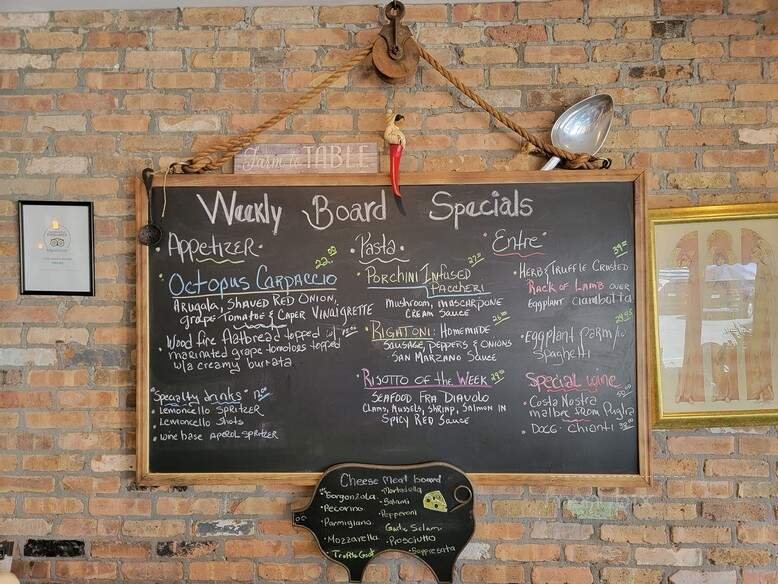 Farm to TABLE
Weekly Board Specials
• Appetizer •
Octopus Carpaccio 22.00
Arugula, Shaved Red Onion,
grape Tomatoe & Caper Vinaigrette
• Wood fire flatbread topped
marinated grape tomatoes topped
w/a creamy burrata
"Specialty drinks"
• Lemoncello Spritzer
• Lemoncello Shots
• wine base Aperol Spritzer
• Pasta •
• Porchini Infused
Paccheri
Mushroom, mascarpone
Cream Sauce
• Rigatoni: Homemade
Sausage, Peppers & Onions
San Marzano Sauce
• Risotto of the Week
Seafood Fra Diavolo
Clams, Mussels, Shrimp, Salmon in
Spicy Red Sauce
• Entre •
• Herb & Truffle Crusted
Rack of Lamb over
Eggplant Ciambotta
• Eggplant Parm/w
Spaghetti
Special wine
• Costa Nostra
malbec from Puglia
• DOCG - Chianti
Cheese Meat board
• Gorgonzola
• Pecorino
• Parmigiano
• Mozzarella
• Truffle Goat
• Mortadella
• Salami
• Pepperoni
Garlic Salami
• Prosciutto
• Soppresata